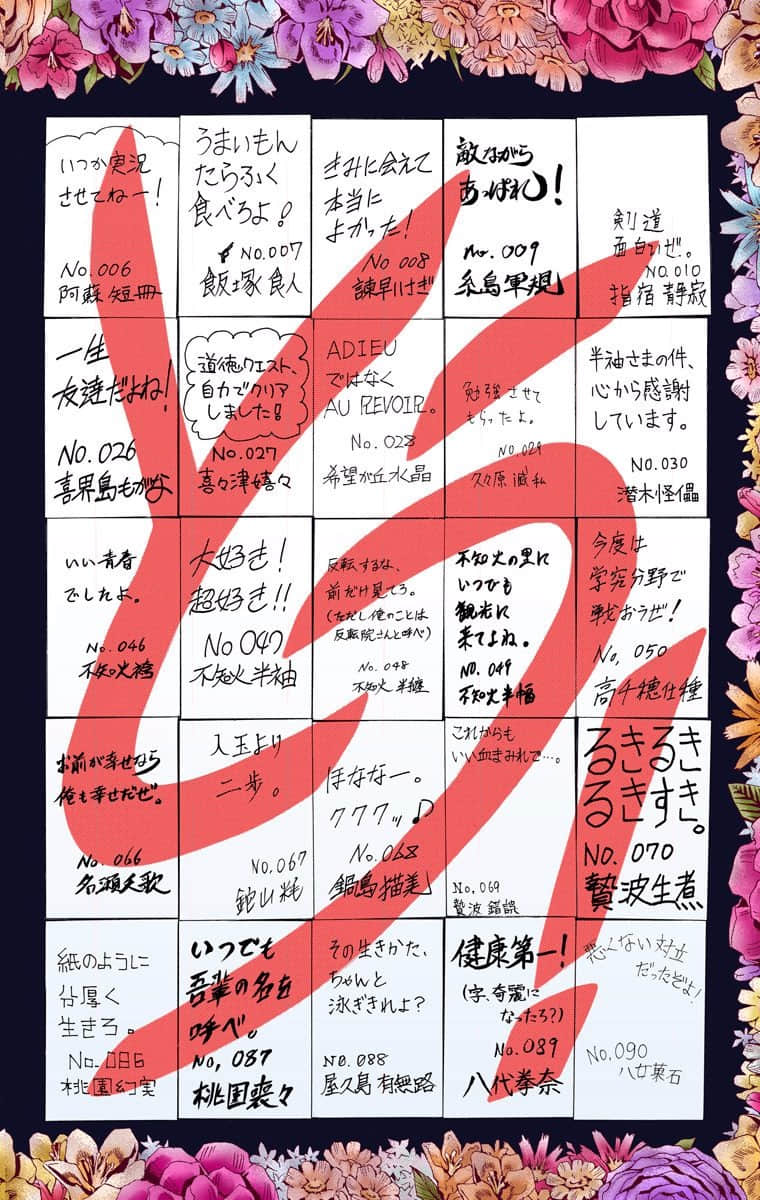 いつか実況
させてねー！
No.006
阿蘇 短冊
うまいもん
たらふく
食べろよ！
No.007
飯塚 食人
きみに会えて
本当に
よかった！
No 008
諫早 けぎ
敵ながら
あっぱれ！
No. 009
糸島 軍規
剣道
面白いぜ。
NO.010
指宿 静寂
一生
友達だよね！
No.026
喜界島もがな
道徳クエスト、
自力でクリア
しました！
No.027
喜々津嬉々
ADIEU
ではなく
AU REVOIR。
No.028
希望が丘水晶
勉強させて
もらったよ。
No.029
久々原 滅私
半袖さまの件、
心から感謝
しています。
NO.030
潜木怪儡
いい青春
でしたよ。
No.046
不知火袴
大好き！
超好き!!
No 047
不知火 半袖
反転するな、
前だけ見てろ。
(ただし俺のことは
反転院さんと呼べ)
No.048
不知火 半纏
不知火の里に
いつでも
観光に
来てよね。
NO.049
不知火半幅
今度は
学究分野で
戦おうぜ！
No, 050
高千穂仕種
お前が幸せなら
俺も幸せだぜ。
No.066
名瀬夭歌
入玉より
二歩。
No.067
鉈山 粍
ほななー。
777ッ♪
No.068
鍋島猫美
これからも
いい血まみれで…。
No.069
贄波 錯誤
るきるき
るきすき。
NO. 070
贄波生煮
紙のように
分厚く
生きろ。
No.086
桃園幻実
いつでも
吾輩の名を
呼べ。
No, 087
桃園喪々
その生きかた、
ちゃんと
泳ぎきれよ？
NO.088
屋久島 有無路
健康第一！
(字、奇麗に
なったろ？)
No.089
八代拳奈
悪くない対立
だったぞよ！
No.090
八女菓石